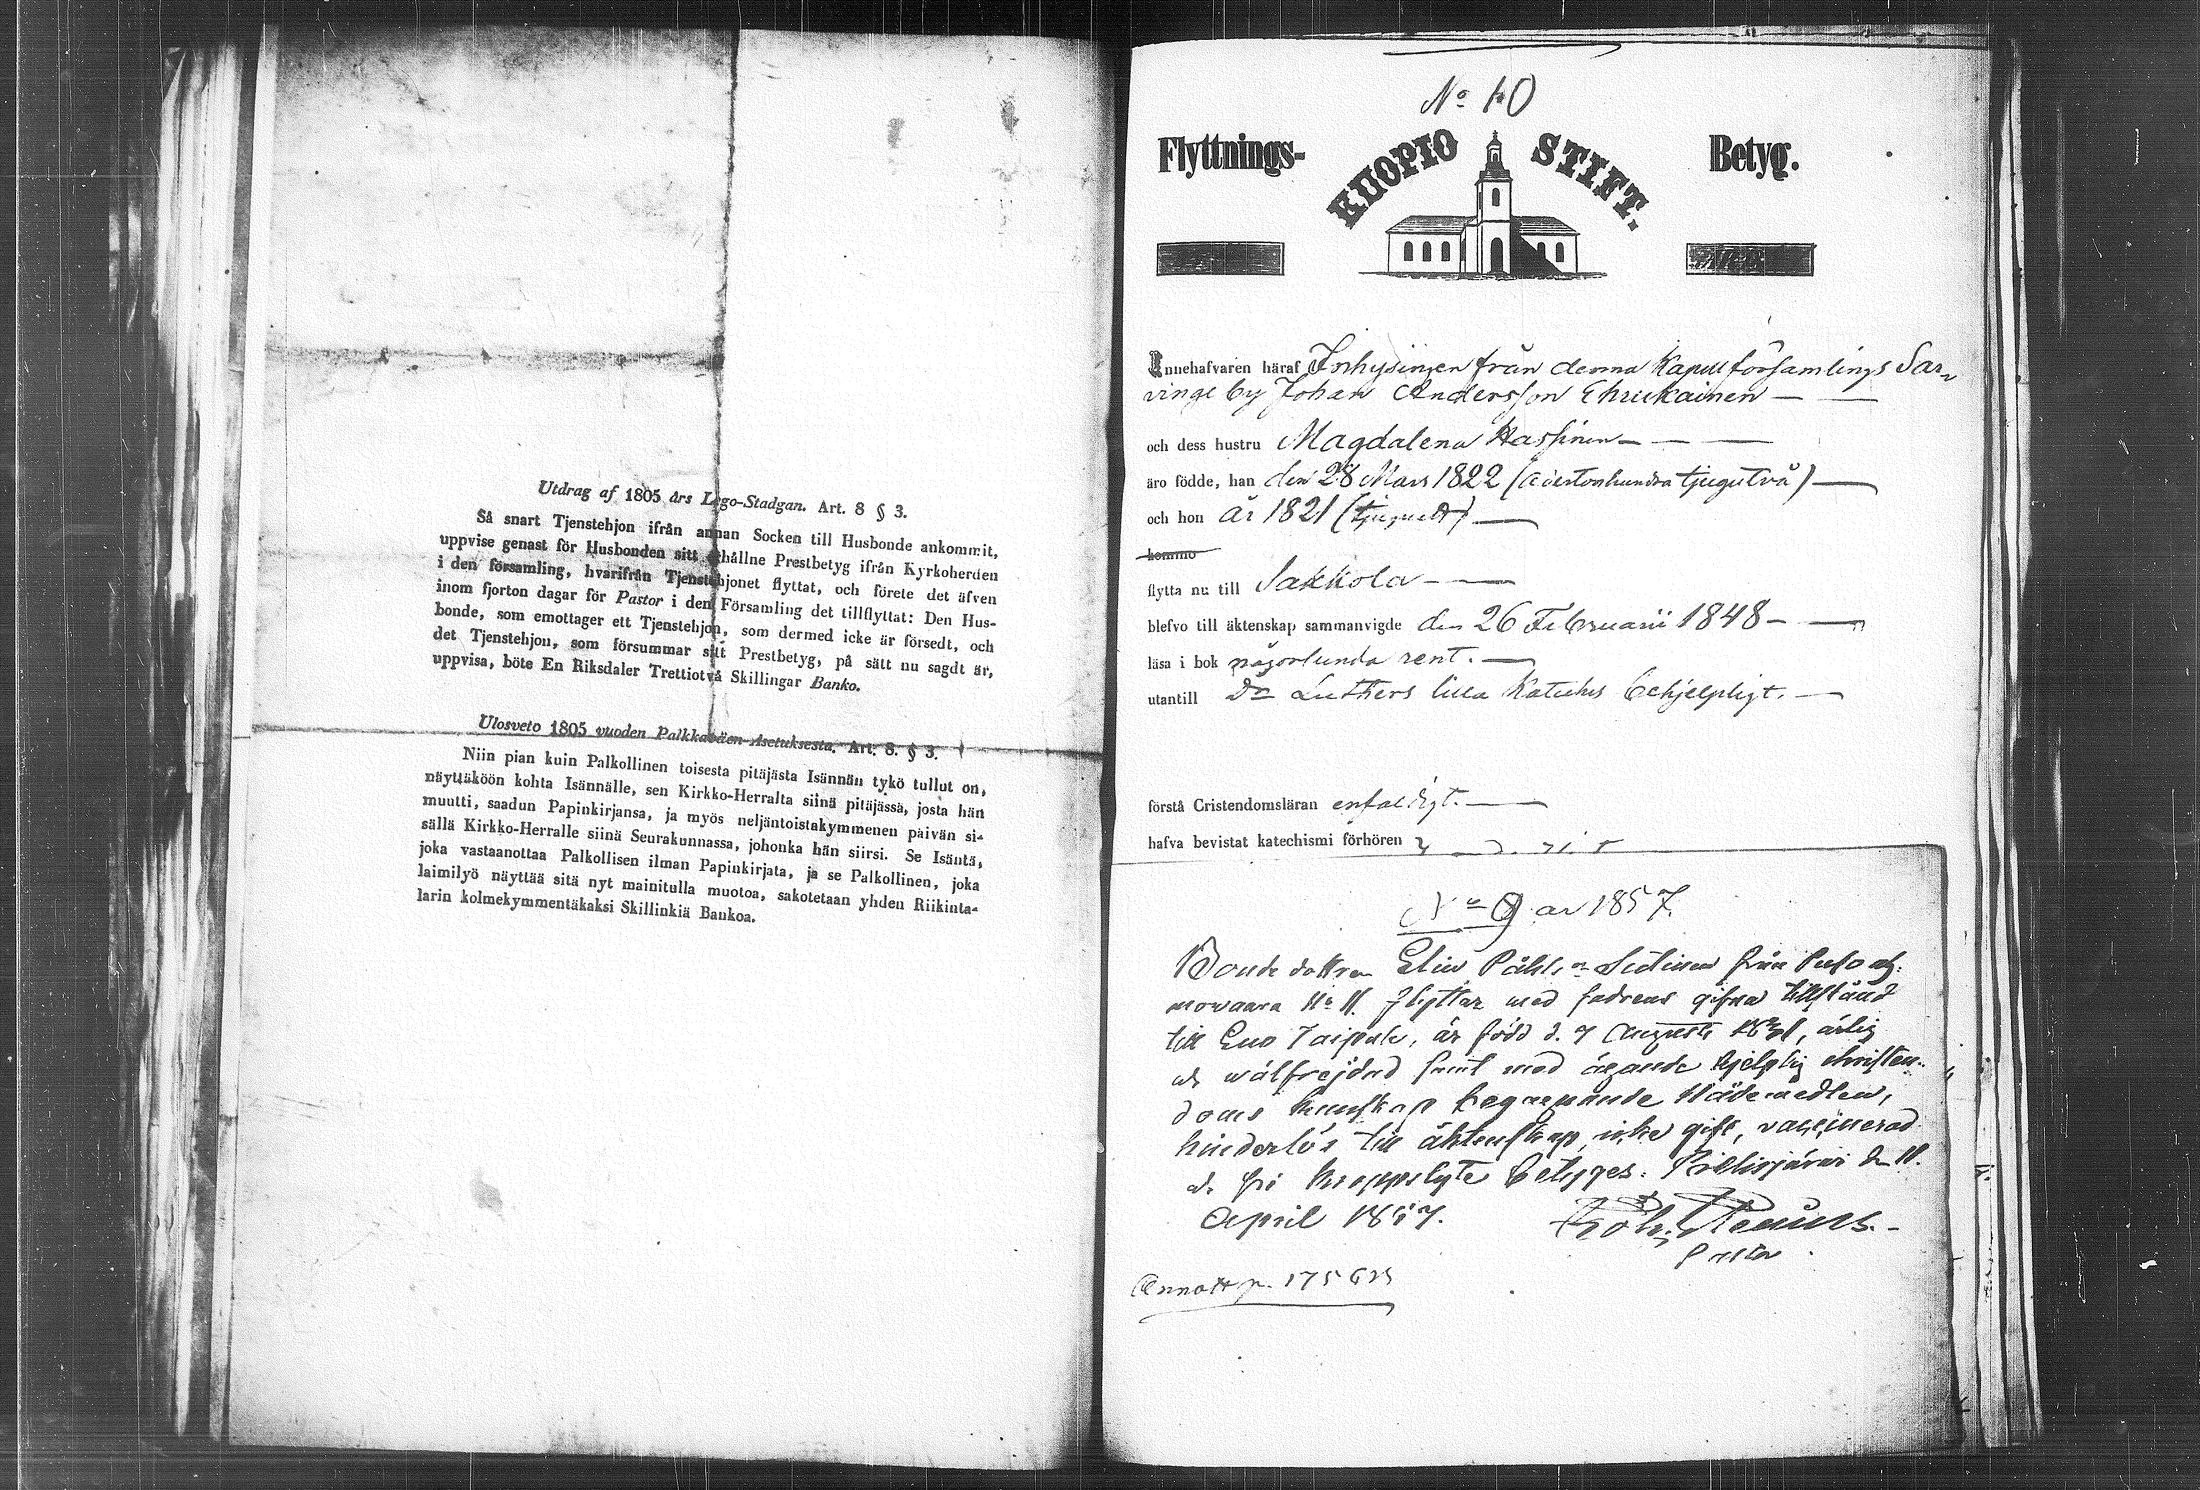 Utdrag af 1805 års Lego-Stadgan. Art. 8 § 3.
Så snart Tjenstehjon ifrån annan Socken till Husbonde ankommit,
uppvise genast för Husbonden sitt erhållne Prestbetyg ifrån Kyrkoherden
i den församling, hvarifrån Tjenstehjonet flyttat, och förete det äfven
inom fjorton dagar för Pastor i den Församling det tillflyttat: Den Hus-
bonde, som emottager ett Tjenstehjon, som dermed icke är försedt, och
det Tjenstehjon, som försummar sitt Prestbetyg, på sätt nu sagdt är,
uppvisa, böte En Riksdaler Trettiotvå Skillingar Banko.
Ulosveto 1805 vuoden Palkkaväen-Asetuksesta. Art. 8. § 3.
Niin pian kuin Palkollinen toisesta pitäjästa Isännän tykö tullut on,
näyttäköön kohta Isännälle, sen Kirkko-Herralta siinä pitäjässä, josta hän
muutti, saadun Papinkirjansa, ja myös neljäntoistakymmenen päivän si-
sällä Kirkko-Herralle siinä Seurakunnassa, johonka hän siirsi. Se Isäntä,
joka vastaanottaa Palkollisen ilman Papinkirjata, ja se Palkollinen, joka
laimilyö näyttää sitä nyt mainitulla muotoa, sakotetaan yhden Riikinta-
larin kolmekymmentäkaksi Skillinkiä Bankoa.
No 10
Flyttnings- KUOPIO STIFT. Betyg.
Innehafvaren häraf Inhysingen från denna Kapellförsamlings Sar-
vinge by Johan Andersson
och dess hustru Magdalena Hassinen
äro födde, han den 28 Mars 1822 (adertonhundra tjugutvå)
och hon år 1821 (tjuguett)
komno
flytta nu till Sakkola
blefvo till äktenskap sammanvigde den 26 Februarii 1848
läsa i bok någorlunda rent.
utantill Dr Luthers lilla Kateches behjelpligt.
förstå Cristendomsläran enfaldigt.
hafva bevistat katechismi förhören
No 9 ar 1857.
Bonde dottren Elin från
No 11. flyttar med fadrens gifna tillstånd
till Eno Taipale, är född d. 7 Augusti, ärlig
och wälfrejdad samt med ägande hjelplig christen-
doms kunskap begagnande Nådemedlen,
hinderlös till äktenskap, icke gift, vaccinerad
och fri kroppslyte betyges. Pielisjärvi den 11.
April 1857.
Pastor
Annott p. 175